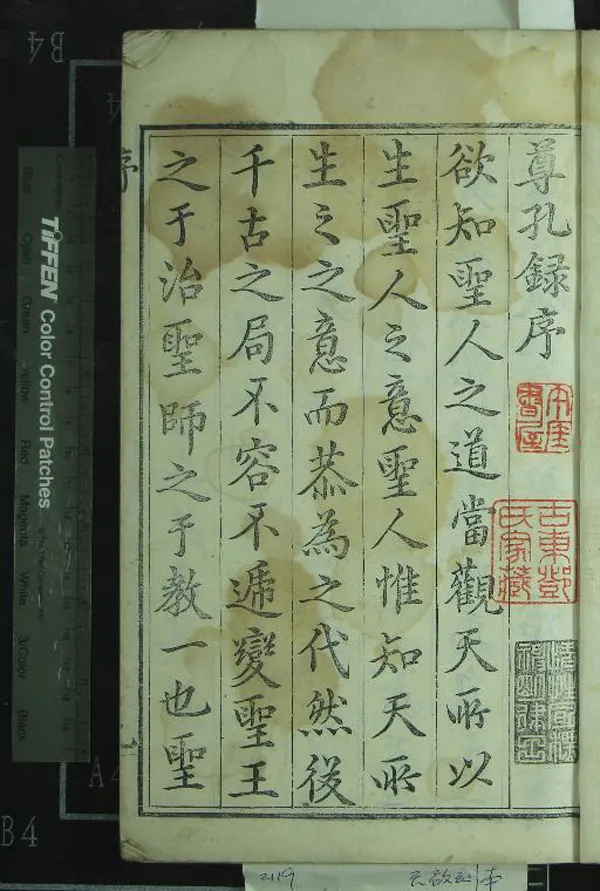 尊孔録序
欲知聖人之道當觀天所以
生聖人之意聖人惟知天所
生之之意而恭為之代然後
千古之局不容不遞變聖王
之于治聖師之于教一也聖
古東鄧氏家藏
序
TIFFEN Color Control Patches
Blue Cyan Green Yellow Red Magenta White 3/Color Black
B4
A4
B4
2119
天啟刻本